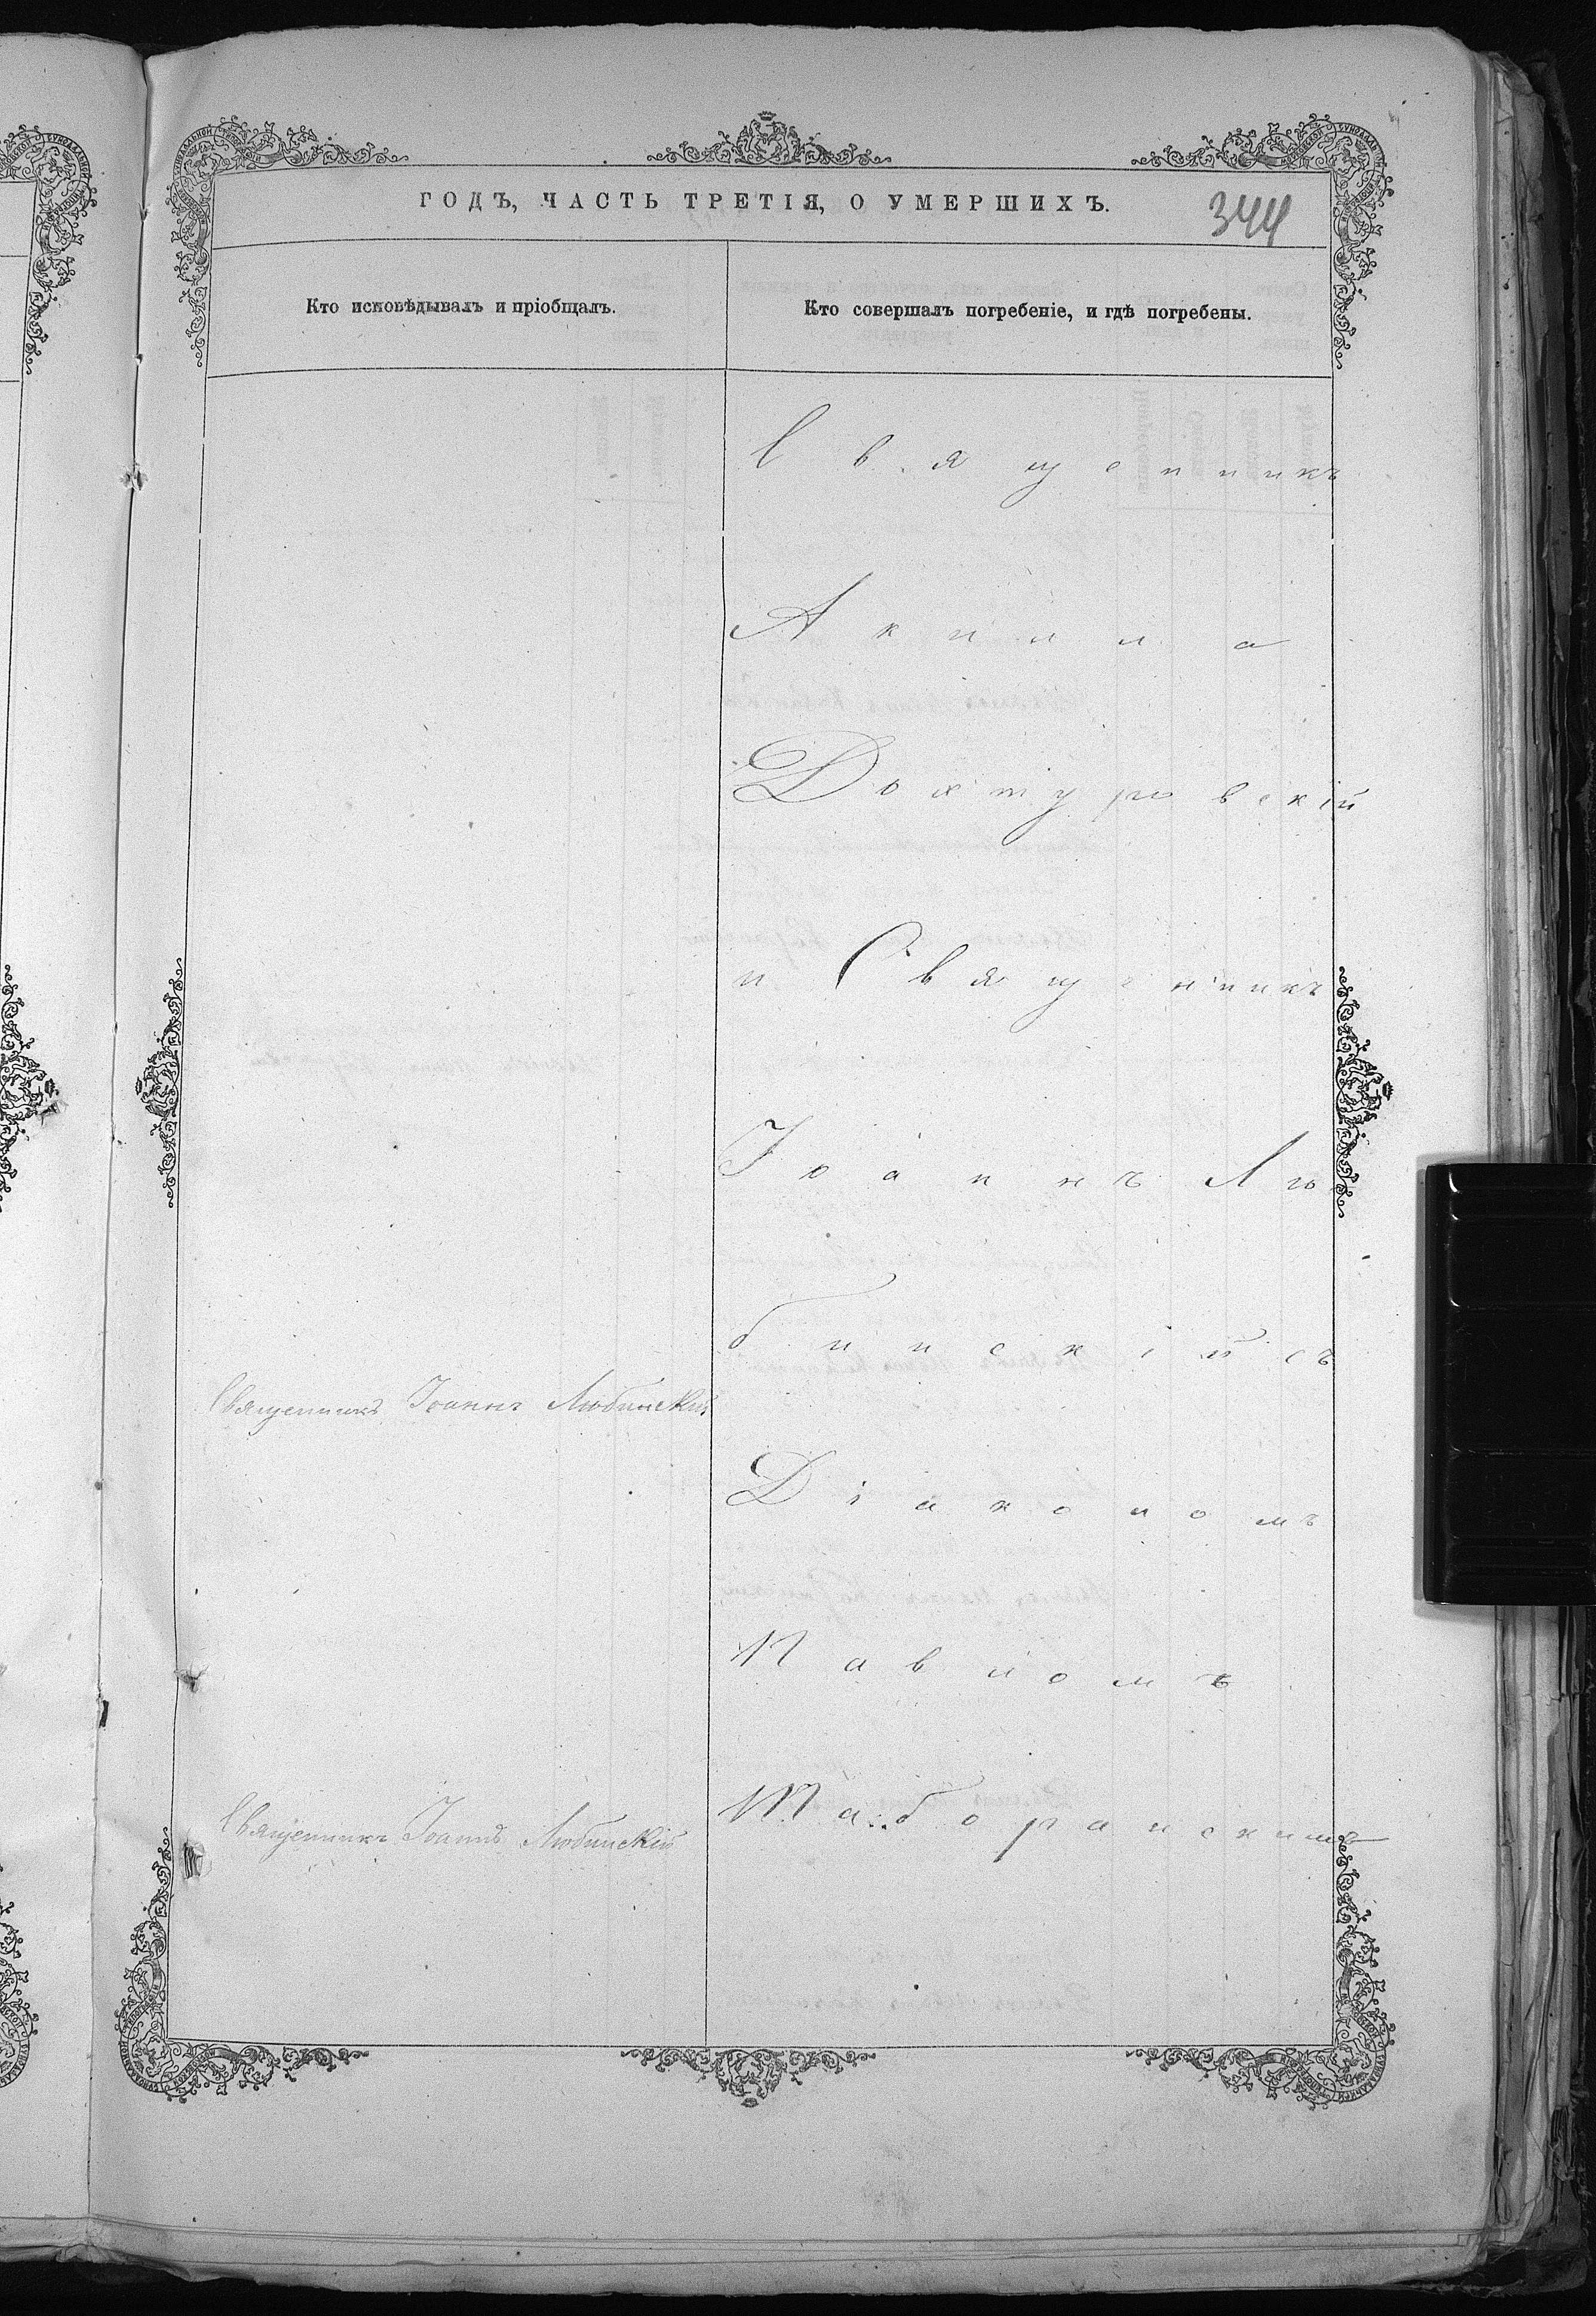 ГОДЪ, ЧАСТЬ ТРЕТІЯ, О УМЕРШИХЪ.
344
Кто исповѣдывалъ и пріобщалъ.
Кто совершалъ погребеніе, и гдѣ погребены.
Священникъ
Акила
Дохтуровскій
и Священникъ
Іоаннъ Лю
бинскій съ
Священникъ Іоаннъ Любинскій
Діакономъ
Павломъ
Священникъ Іоаннъ Любинскій
Таборанскимъ